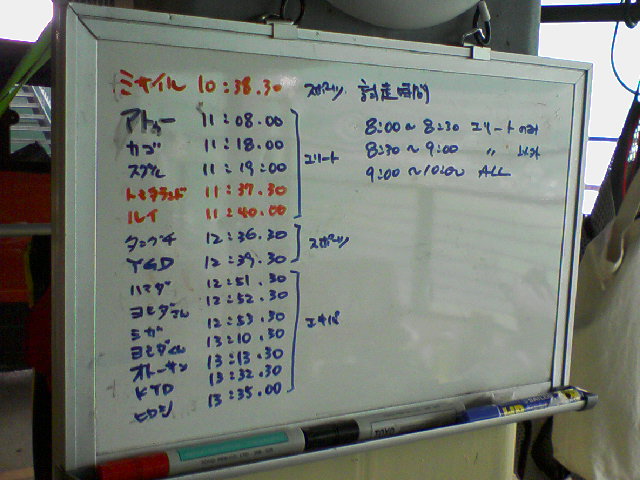 ミサイル 10:38.30 スポーツ 試走時間
アトゥー 11:08.00 8:00～8:30 エリートのみ
カゴ 11:18.00 8:30～9:00 〃 以外
11:19:00 エリート 9:00～10:00 ALL
11:37.30
ルイ 11:40.00
タニグチ 12:36.30 スポーツ
YGD 12:39.30
ハマダ 12:51.30
ヨシダさん 12:52.30
ミカ 12:53.30 エキパ
ヨシダくん 13:10.30
オトーサン 13:13.30
KTD 13:32.30
ヒロシ 13:35.00